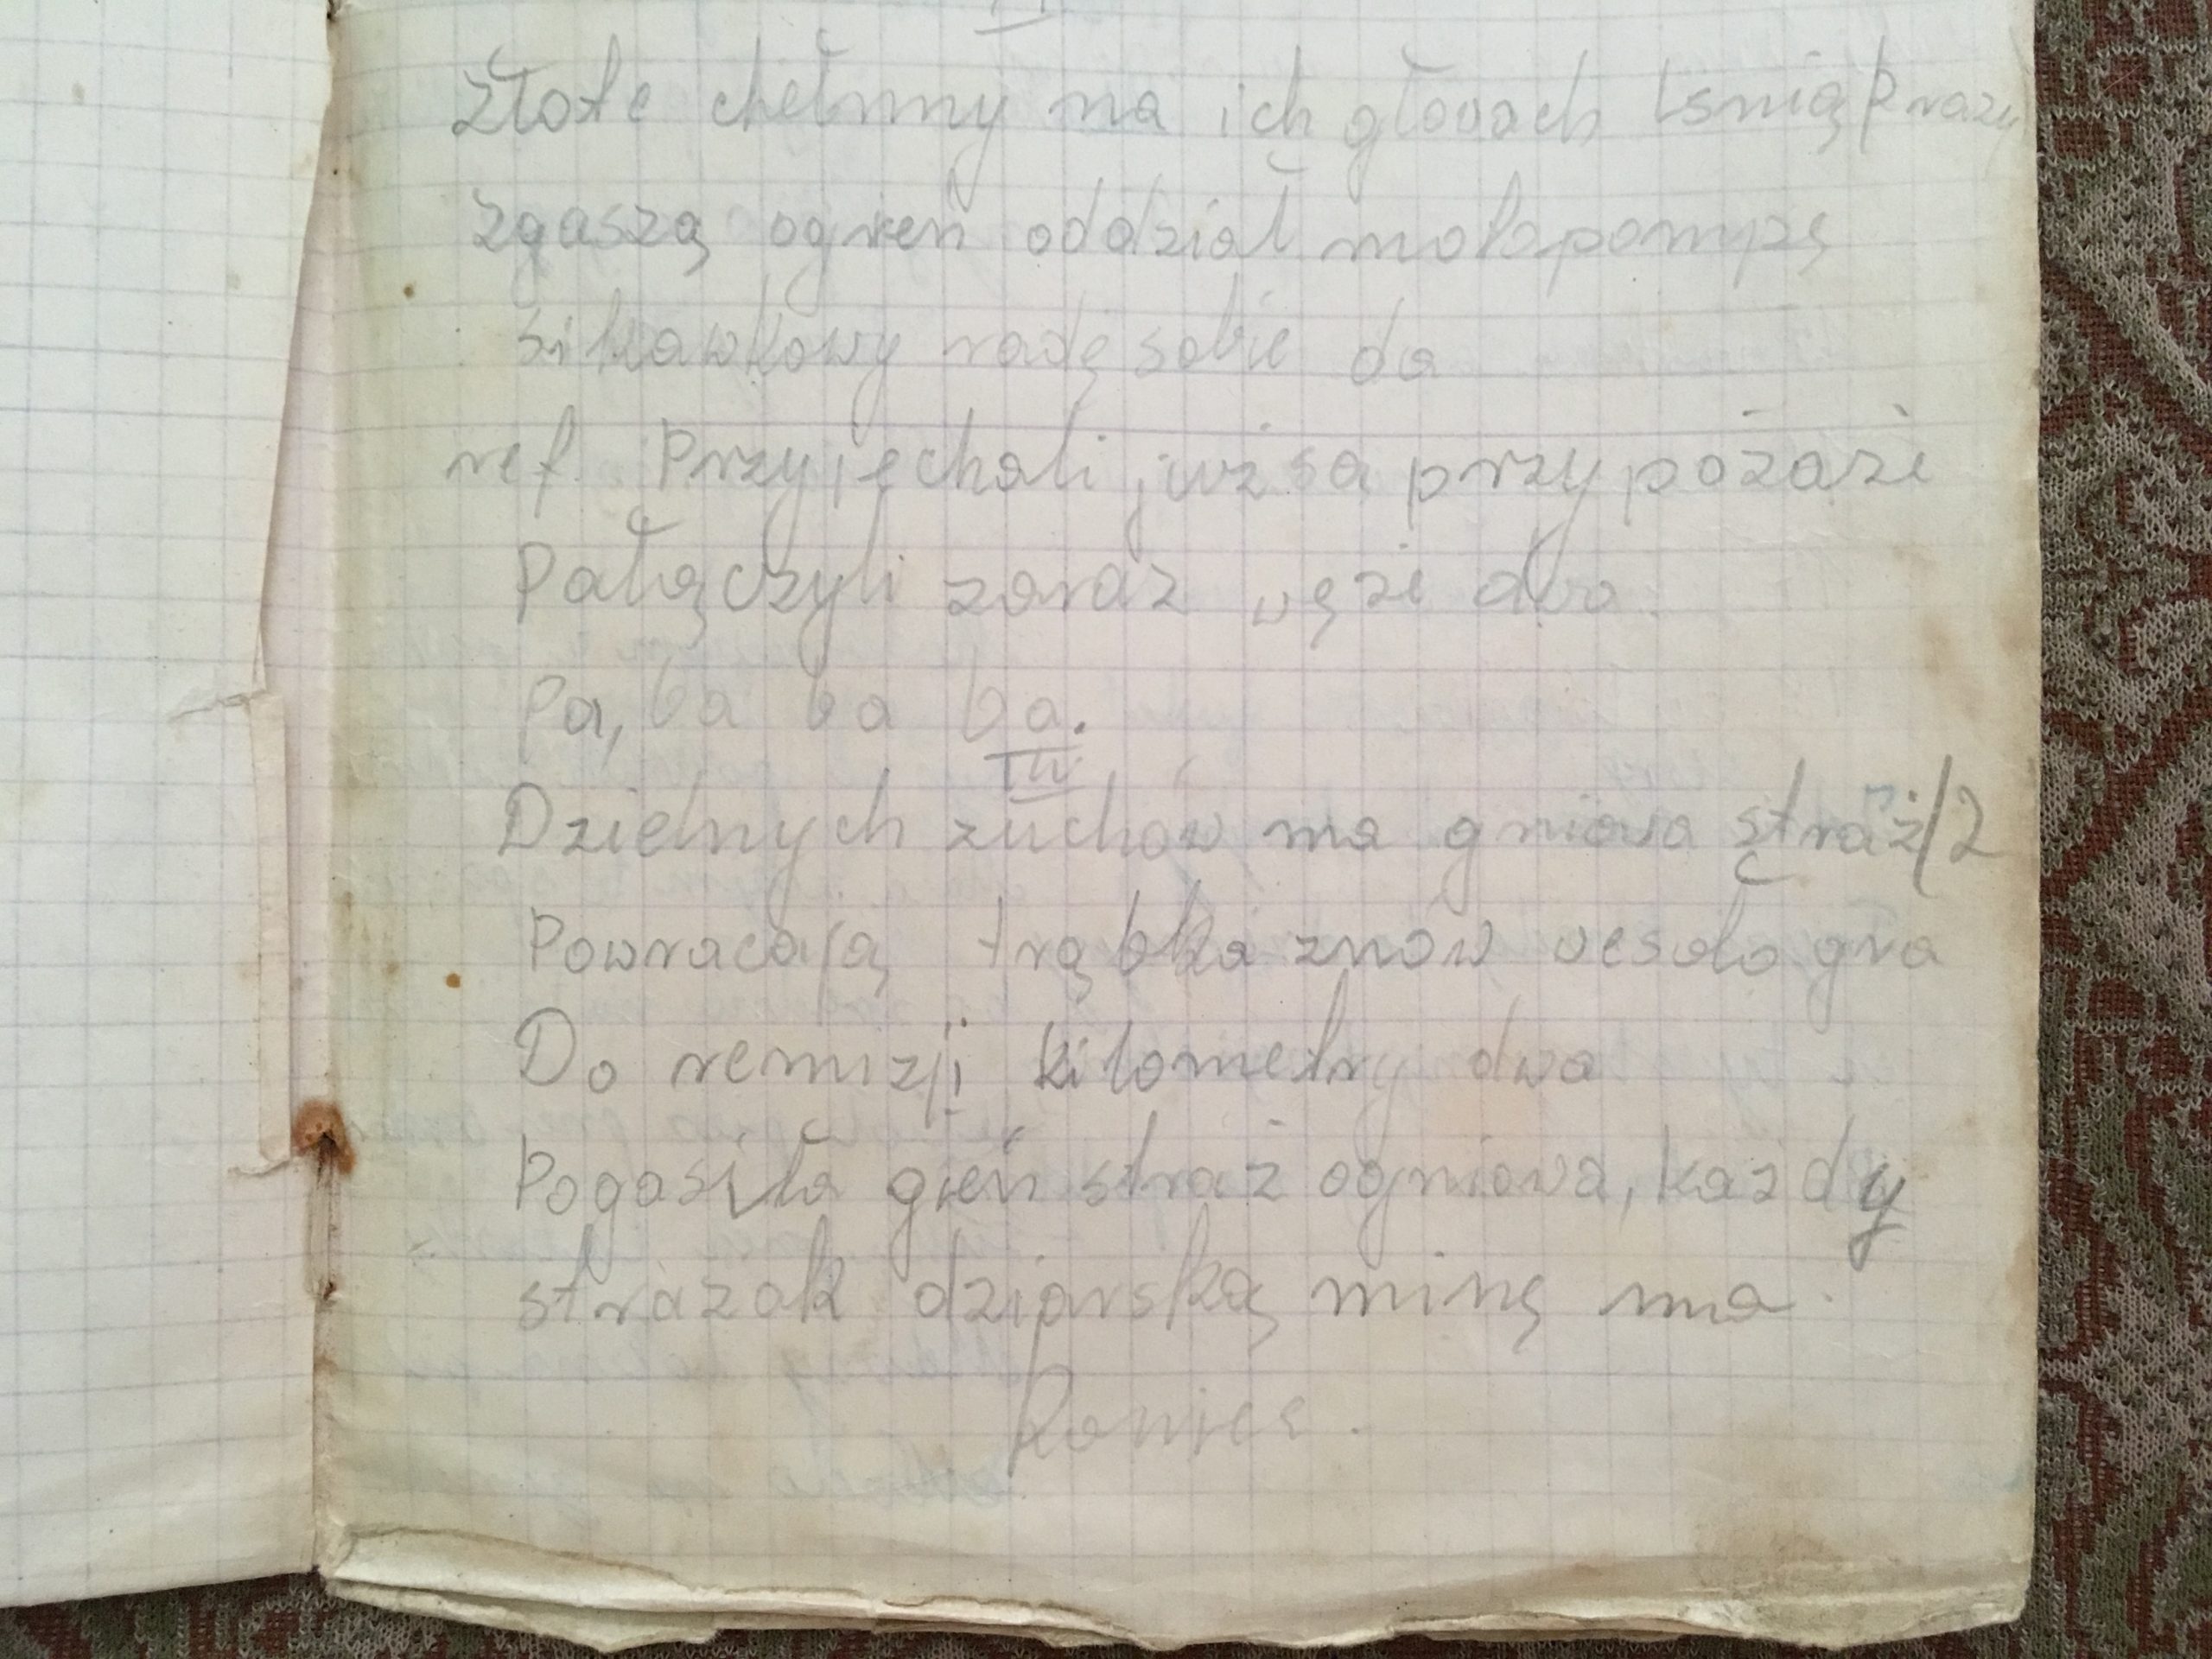 Złote chełmy na ich głowach lśnią/2 razy
zgaszą ogień oddział motopompę
sikawkowy radę sobie da
ref. Przyjechali już są przy pożaże
Pałączyli zaraz węże dwa.
Pa, ba ba ba.
III
Dzielnych zuchów ma gniowa straż/2
Powracają trąbka znów wesoło gra
Do remizji kilometry dwa
Pogasiła gień straż ogniowa, każdy
strażak dziarską minę ma.
Koniec.